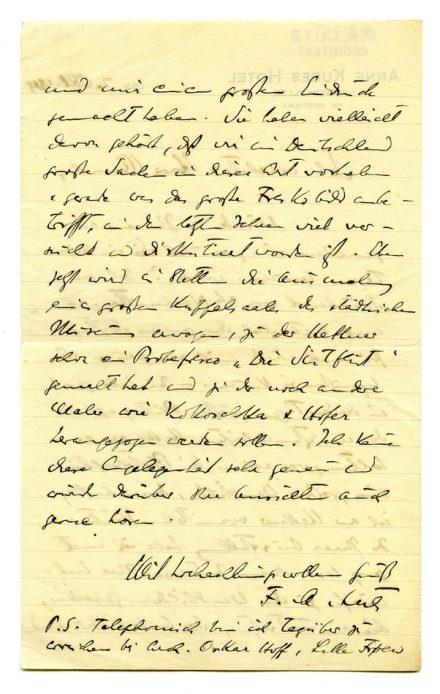 und mir einen großen Eindruck
gemacht haben. Sie haben vielleicht
davon gehört, daß wir in Deutschland
große Sachen in dieser Art vorhaben
u gerade was das große Freskobild anbe-
trifft, in den letzten Jahren viel ver-
sucht und diskutiert worden ist. Eben
jetzt wird in Stettin die Ausmalung
eines großen Kuppelsaales des städtischen
Museums erwogen, zu der
schon ein Probefresco „Die Sintflut“
gemalt hat und zu der noch andere
Maler wie Kokoschka & Hofer
herangezogen werden sollen. Ich kenne
diese Angelegenheit sehr genau und
würde darüber Ihre Ansicht auch
gerne hören.
Mit hochachtungsvollem Gruß
F. A.
P.S. Telephonisch bin ich tagsüber zu
erreichen bei Arch. Oskar Hoff, Lille Frogner
ANNE KURES HOTEL
ARCHITEKT